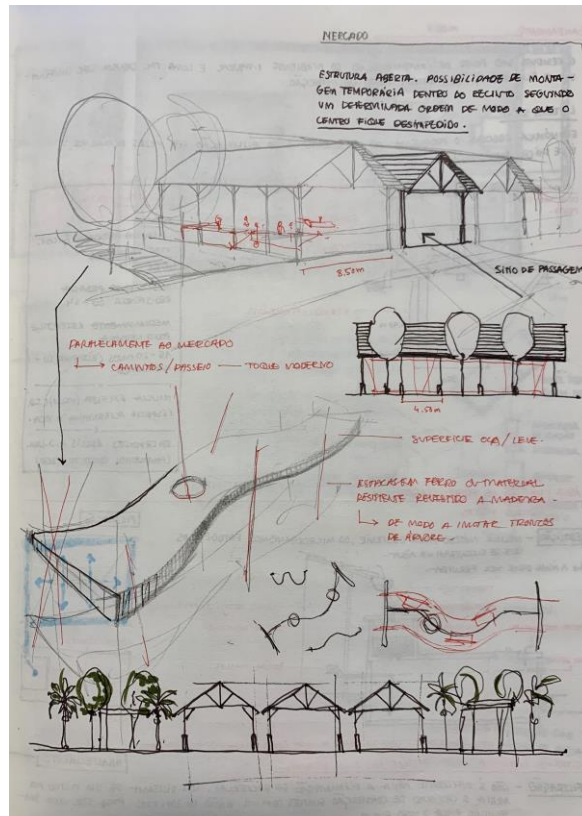 MERCADO
ESTRUTURA ABERTA. POSSIBILIDADE DE MONTA-
GEM TEMPORÁRIA DENTRO DO RECINTO SEGUINDO
UM DETERMINADA ORDEM DE MODO A QUE O
CENTRO FIQUE DESIMPEDIDO.
8.50m
SITIO DE PASSAGEM
PARALELAMENTE AO MERCADO
CAMINHOS/PASSEIO — TOQUE MODERNO
4.50m
SUPERFICIE OCA/LEVE.
ESTACAS EM FERRO OU MATERIAL
RESISTENTE REVESTIDO A MADEIRA.
DE MODO A IMITAR TRONCOS
DE ÁRVORE.